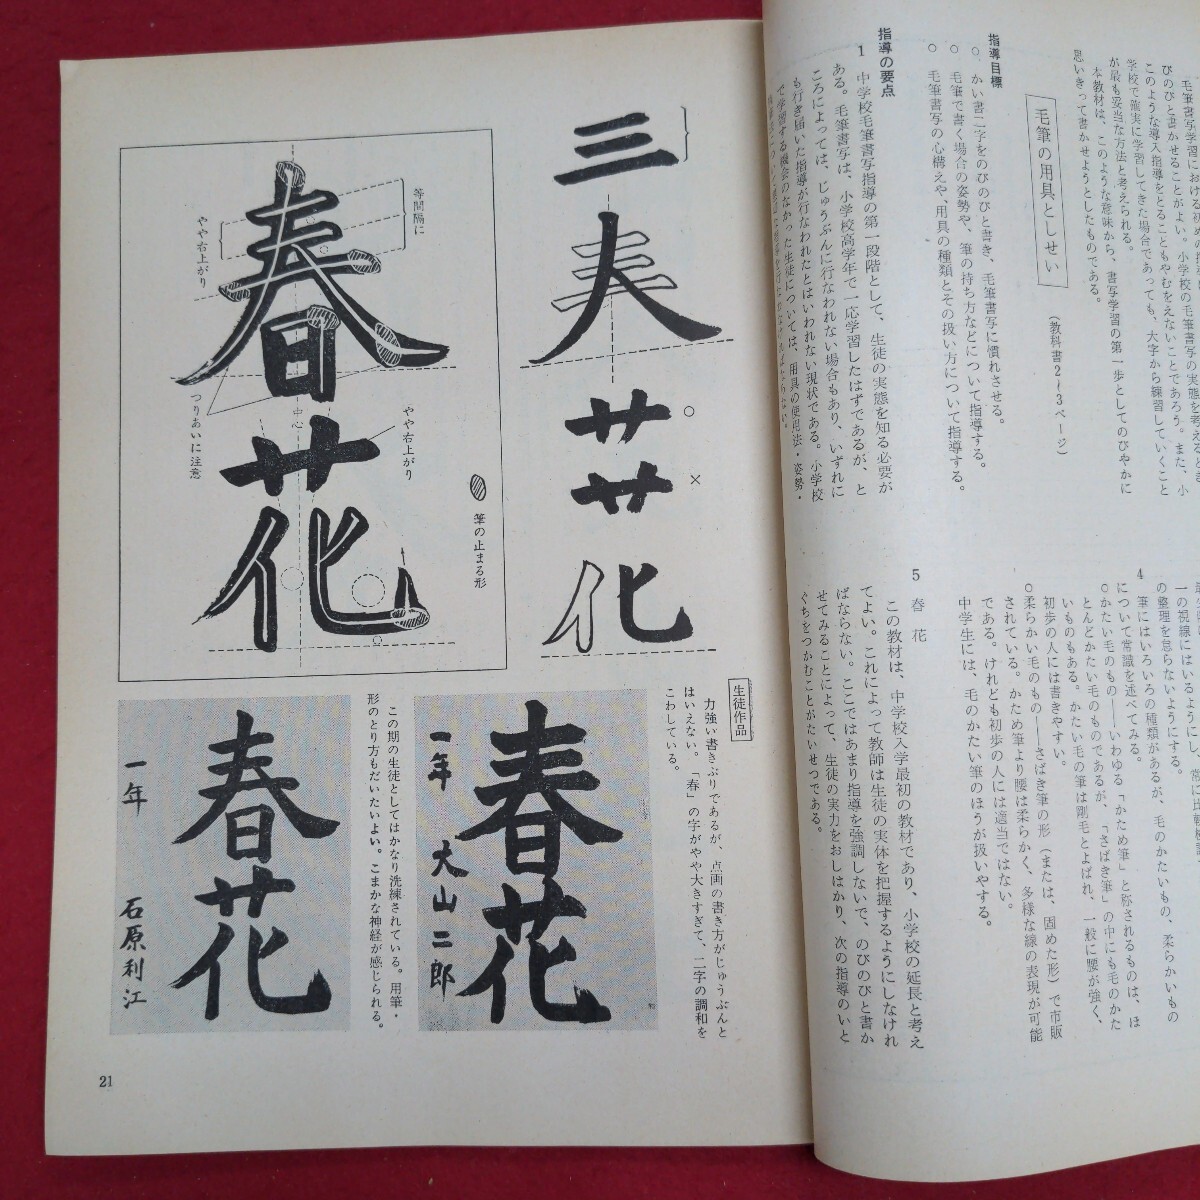 毛筆書写学習における
びのびと書かせることがよい。小学校の毛筆書写の実態を考える
このような導入指導をとることもやむをえないことであろう。また、小
学校で確実に学習してきた場合であっても、大字から練習していくこと
が最も妥当な方法と考えられる。
本教材は、このような意味から、書写学習の第一歩としてのびやかに
思いきって書かせようとしたものである。
毛筆の用具としせい
(教科書2～3ページ)
指導目標
○ かい書二字をのびのびと書き、毛筆書写に慣れさせる。
○ 毛筆で書く場合の姿勢や、筆の持ち方などについて指導する。
○ 毛筆書写の心構えや、用具の種類とその扱い方について指導する。
指導の要点
1 中学校毛筆書写指導の第一段階として、生徒の実態を知る必要が
ある。毛筆書写は、小学校高学年で一応学習したはずであるが、と
ころによっては、じゅうぶんに行なわれない場合もあり、いずれに
も行き届いた指導が行なわれたとはいわれない現状である。小学校
で学習する機会のなかった生徒については、用具の使用法・姿勢・
一の視線にはいるようにし、常に
の整理を怠らないようにする。
4 筆にはいろいろの種類があるが、毛のかたいもの、柔らかいもの
について常識を述べてみる。
○かたい毛のもの――いわゆる「かため筆」と称されるものは、ほ
とんどかたい毛のものであるが、「さばき筆」の中にも毛のかた
いものもある。かたい毛の筆は剛毛とよばれ、一般に腰が強く、
初歩の人には書きやすい。
○柔らかい毛のもの――さばき筆の形(または、固めた形)で市販
されている。かため筆より腰は柔らかく、多様な線の表現が可能
である。けれども初歩の人には適当ではない。
中学生には、毛のかたい筆のほうが扱いやすい。
5 春花
この教材は、中学校入学最初の教材であり、小学校の延長と考え
てよい。これによって教師は生徒の実体を把握するようにしなけれ
ばならない。ここではあまり指導を強調しないで、のびのびと書か
せてみることによって、生徒の実力をおしはかり、次の指導のいと
ぐちをつかむことがたいせつである。
三
夫
○
×
花
化
春花
等間隔に
やや右上がり
つりあいに注意
中心
やや右上がり
筆の止まる形
生徒作品
力強い書きぶりであるが、点画の書き方がじゅうぶんと
はいえない。「春」の字がやや大きすぎて、二字の調和を
こわしている。
春花
一年 大山二郎
この期の生徒としてはかなり洗練されている。用筆・
形のとり方もだいたいよい。こまかな神経が感じられる。
春花
一年 石原利江
21